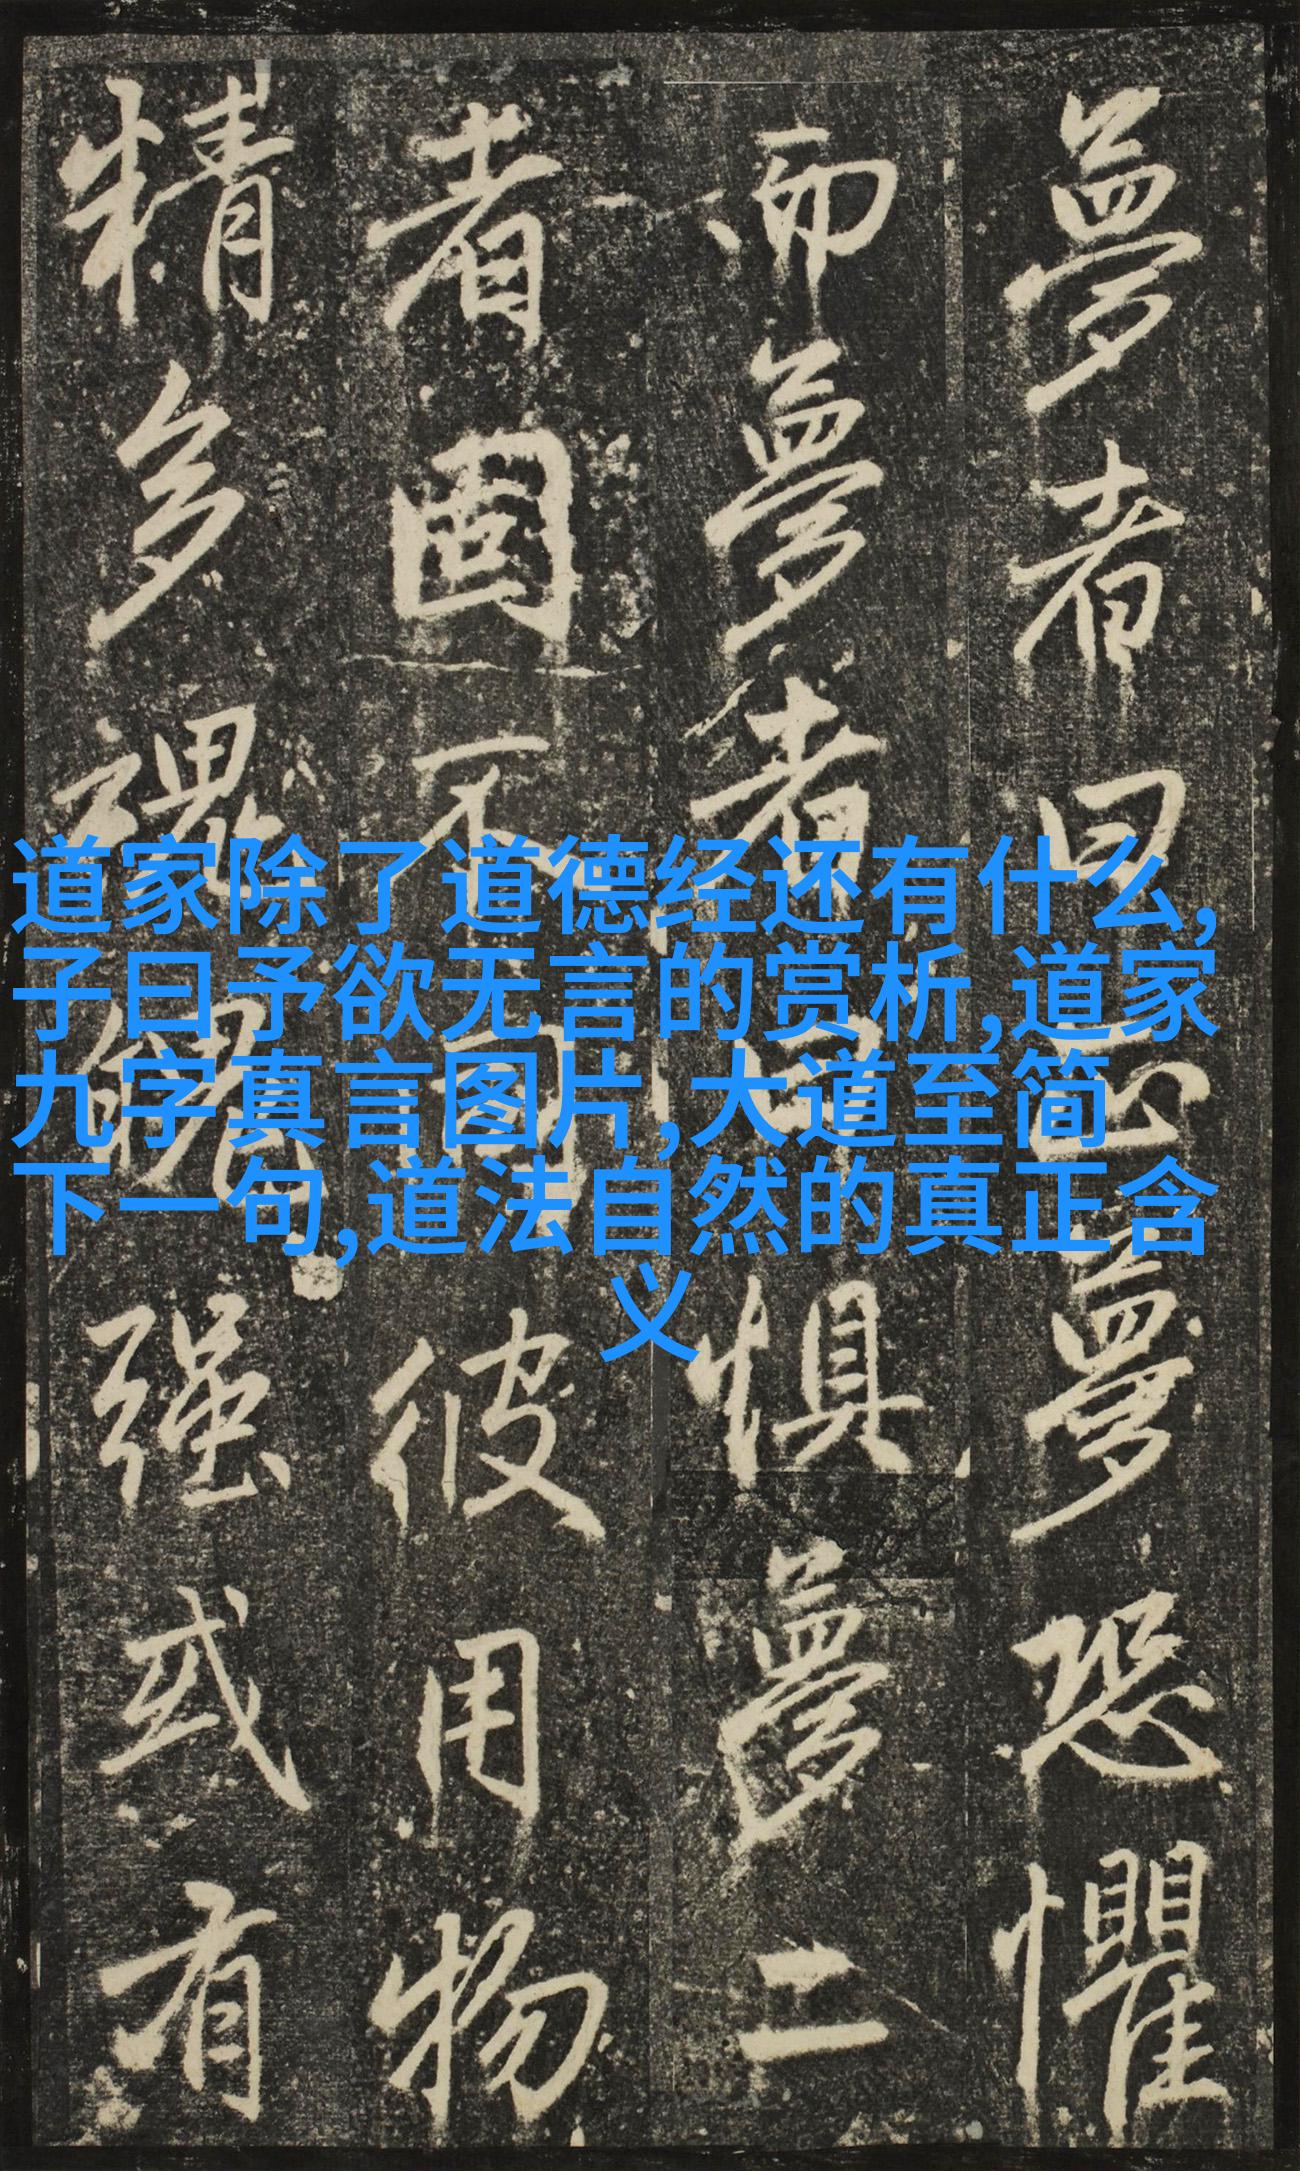 夢者曰夢恐懼
而夢者曰懼夢二
者固不可彼用物
精多魂魄强或有
道家除了道德经还有什么,
子曰予欲无言的赏析,道家
九字真言图片,大道至简
下一句,道法自然的真正含
义